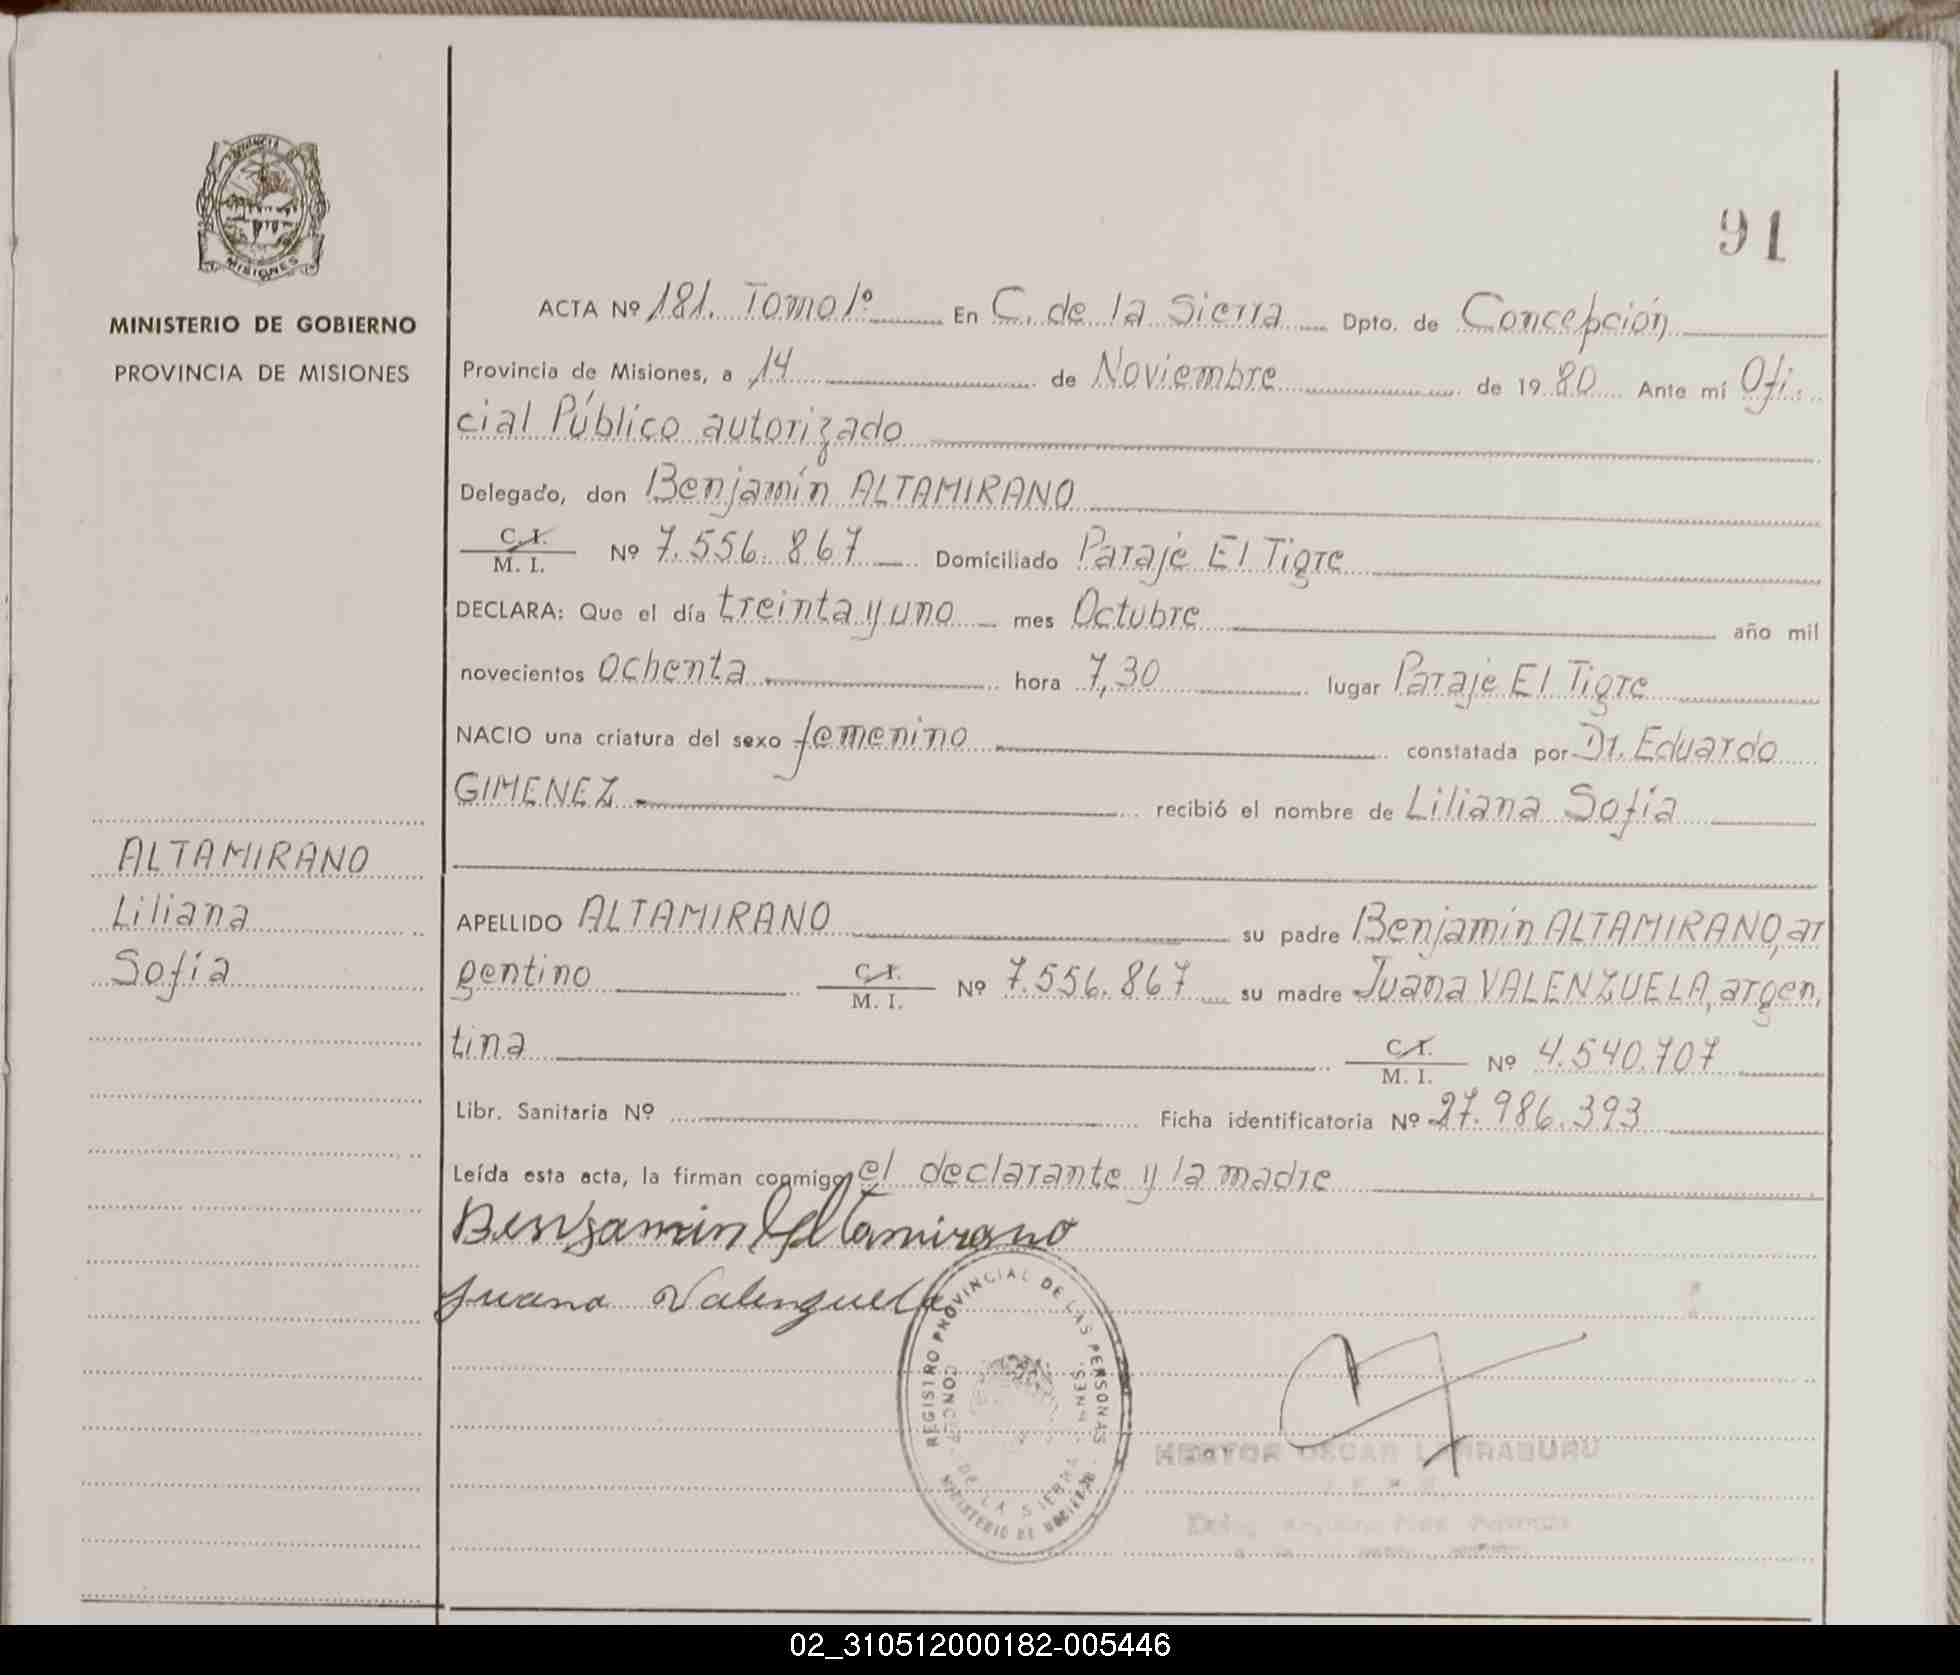 PROVINCIA DE
MISIONES
MINISTERIO DE GOBIERNO
PROVINCIA DE MISIONES
91
ACTA Nº 181. Tomo 1º En C. de la Sierra Dpto. de Concepción
Provincia de Misiones, a 14 de Noviembre de 1980 Ante mí Ofi-
cial Público autorizado
Delegado, don Benjamín ALTAMIRANO
C. I.
M. I. Nº 7.556.867 Domiciliado Paraje El Tigre
DECLARA: Que el día treinta y uno mes Octubre año mil
novecientos ochenta hora 7,30 lugar Paraje El Tigre
NACIO una criatura del sexo femenino constatada por Dr. Eduardo
GIMENEZ recibió el nombre de Liliana Sofía
ALTAMIRANO
Liliana
Sofía
APELLIDO ALTAMIRANO su padre Benjamín ALTAMIRANO, ar
gentino C. I.
M. I. Nº 7.556.867 su madre Juana VALENZUELA, argen,
tina C. I.
M. I. Nº 4.540.707
Libr. Sanitaria Nº Ficha identificatoria Nº 27.986.393
Leída esta acta, la firman conmigo, el declarante y la madre
Benjamin Altamirano
Juana Valenzuela
REGISTRO PROVINCIAL DE LAS PERSONAS
CONCEP. DE LA SIERRA
MINISTERIO DE
HECTOR OSCAR LARRABURU
02_310512000182-005446